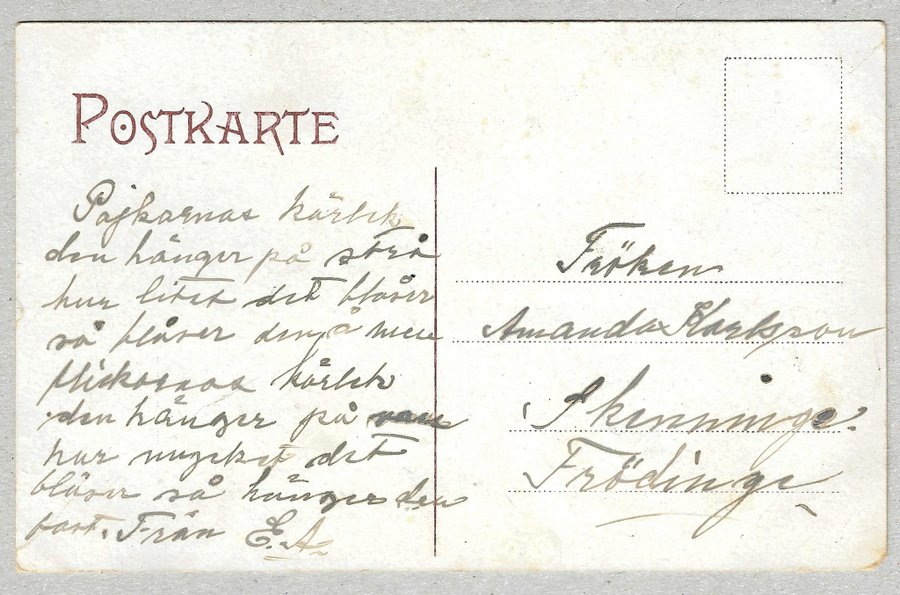 POSTKARTE
Pojkarnas kärlek
den hänger på strå
hur litet det blåser
så blåser den å men
flickornas kärlek
den hänger på
hur mycket det
blåser så hänger den
fast. Från E. A
Fröken
Amanda Karlsson
Skenninge.
Frödinge